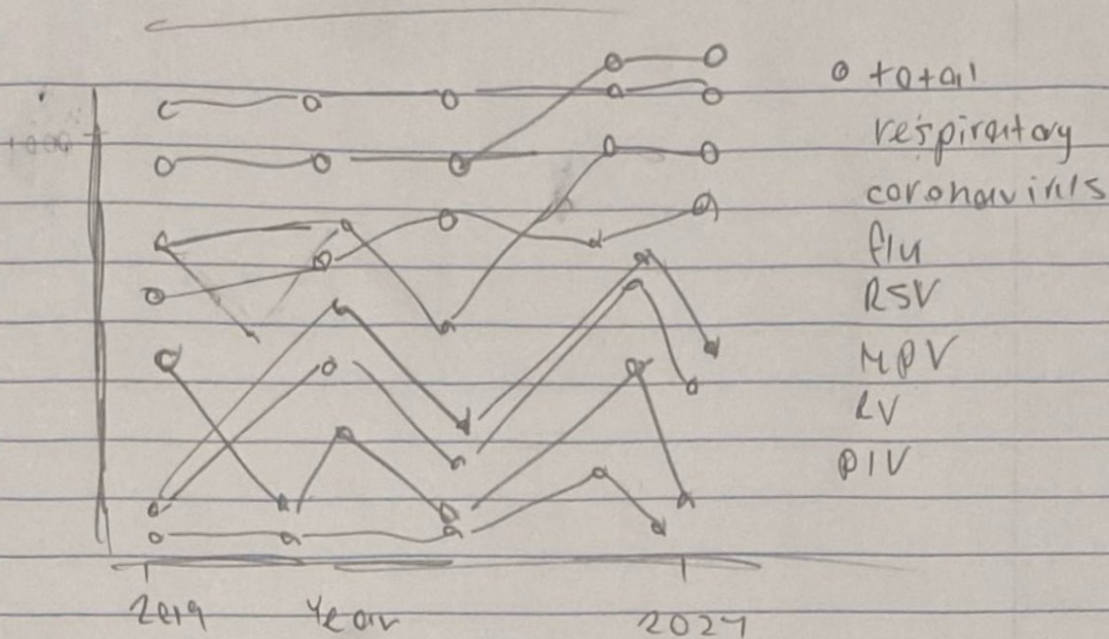 1000
total
respiratory
coronavirus
flu
RSV
MPV
RV
PIV
2019 Year 2024